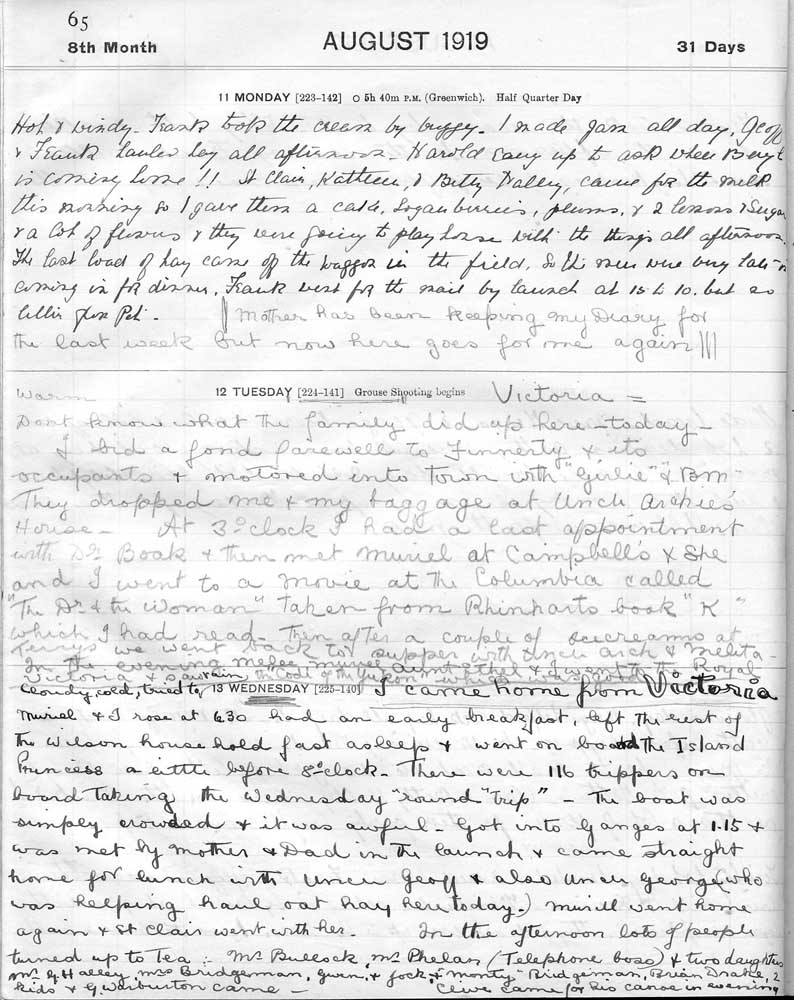 65
8th Month AUGUST 1919 31 Days
11 MONDAY [223-142] O 5h 40m P.M. (Greenwich). Half Quarter Day
Hot & windy. Frank took the cream by buggy. I made jam all day, Geoff
& Frank hauled hay all afternoon. Harold sang up to ask when Beryl
is coming home !! St Clair, Kathleen, & Betty Halley, came for the milk
this morning so I gave them a cake, Loganberries, plums, & 2 lemons & sugar
& a lot of flowers & they were going to play house with the things all afternoon.
The last load of hay came off the waggon in the field, so the men were very late in
coming in for dinner, Frank went for the mail by launch at 15 to 10. but no
letter from Pet.
Mother has been keeping my Diary for
the last week but now here goes for me again !!!
12 TUESDAY [224-141] Grouse Shooting begins Victoria =
Warm
Dont know what the family did up here to-day -
I bid a fond farewell to Finnerty & its
occupants & motored into town with "Girlie" & BM -
They dropped me & my baggage at Uncle Archie's
House - At 3 o'clock I had a last appointment
with Dr Boak & then met Muriel at Campbell's & she
and I went to a movie at the Columbia called
"The Dr & the Woman" taken from Rhinharts book "K"
which I had read - Then after a couple of icecreams at
Terrys we went back to supper with Uncle Arch & Melita -
In the evening Muriel Aunt Ethel & I went to the Royal
Victoria & saw
Cloudy, cold, tried to rain
13 WEDNESDAY [225-140] I came home from Victoria
Muriel & I rose at 6.30 had an early breakfast, left the rest of
the Wilson household fast asleep & went on board the Island
Princess a little before 8 o'clock - There were 116 trippers on
board taking the Wednesday "round trip" - The boat was
simply crowded & it was awful - Got into Ganges at 1.15 &
was met by Mother & Dad in the launch & came straight
home for lunch with Uncle Geoff & also Uncle George (who
was helping haul oat hay here today.) Muriel went home
again & St Clair went with her. In the afternoon lots of people
turned up to Tea : Mr Bullock, Mr Phelan (Telephone boss) & two daughters
Mr G Halley, Mrs Bridgeman, Gwen & Jock, & Monty Bridgeman, Brian Drake, 2
kids & G. Warburton came - Clive came for his canoe in evening